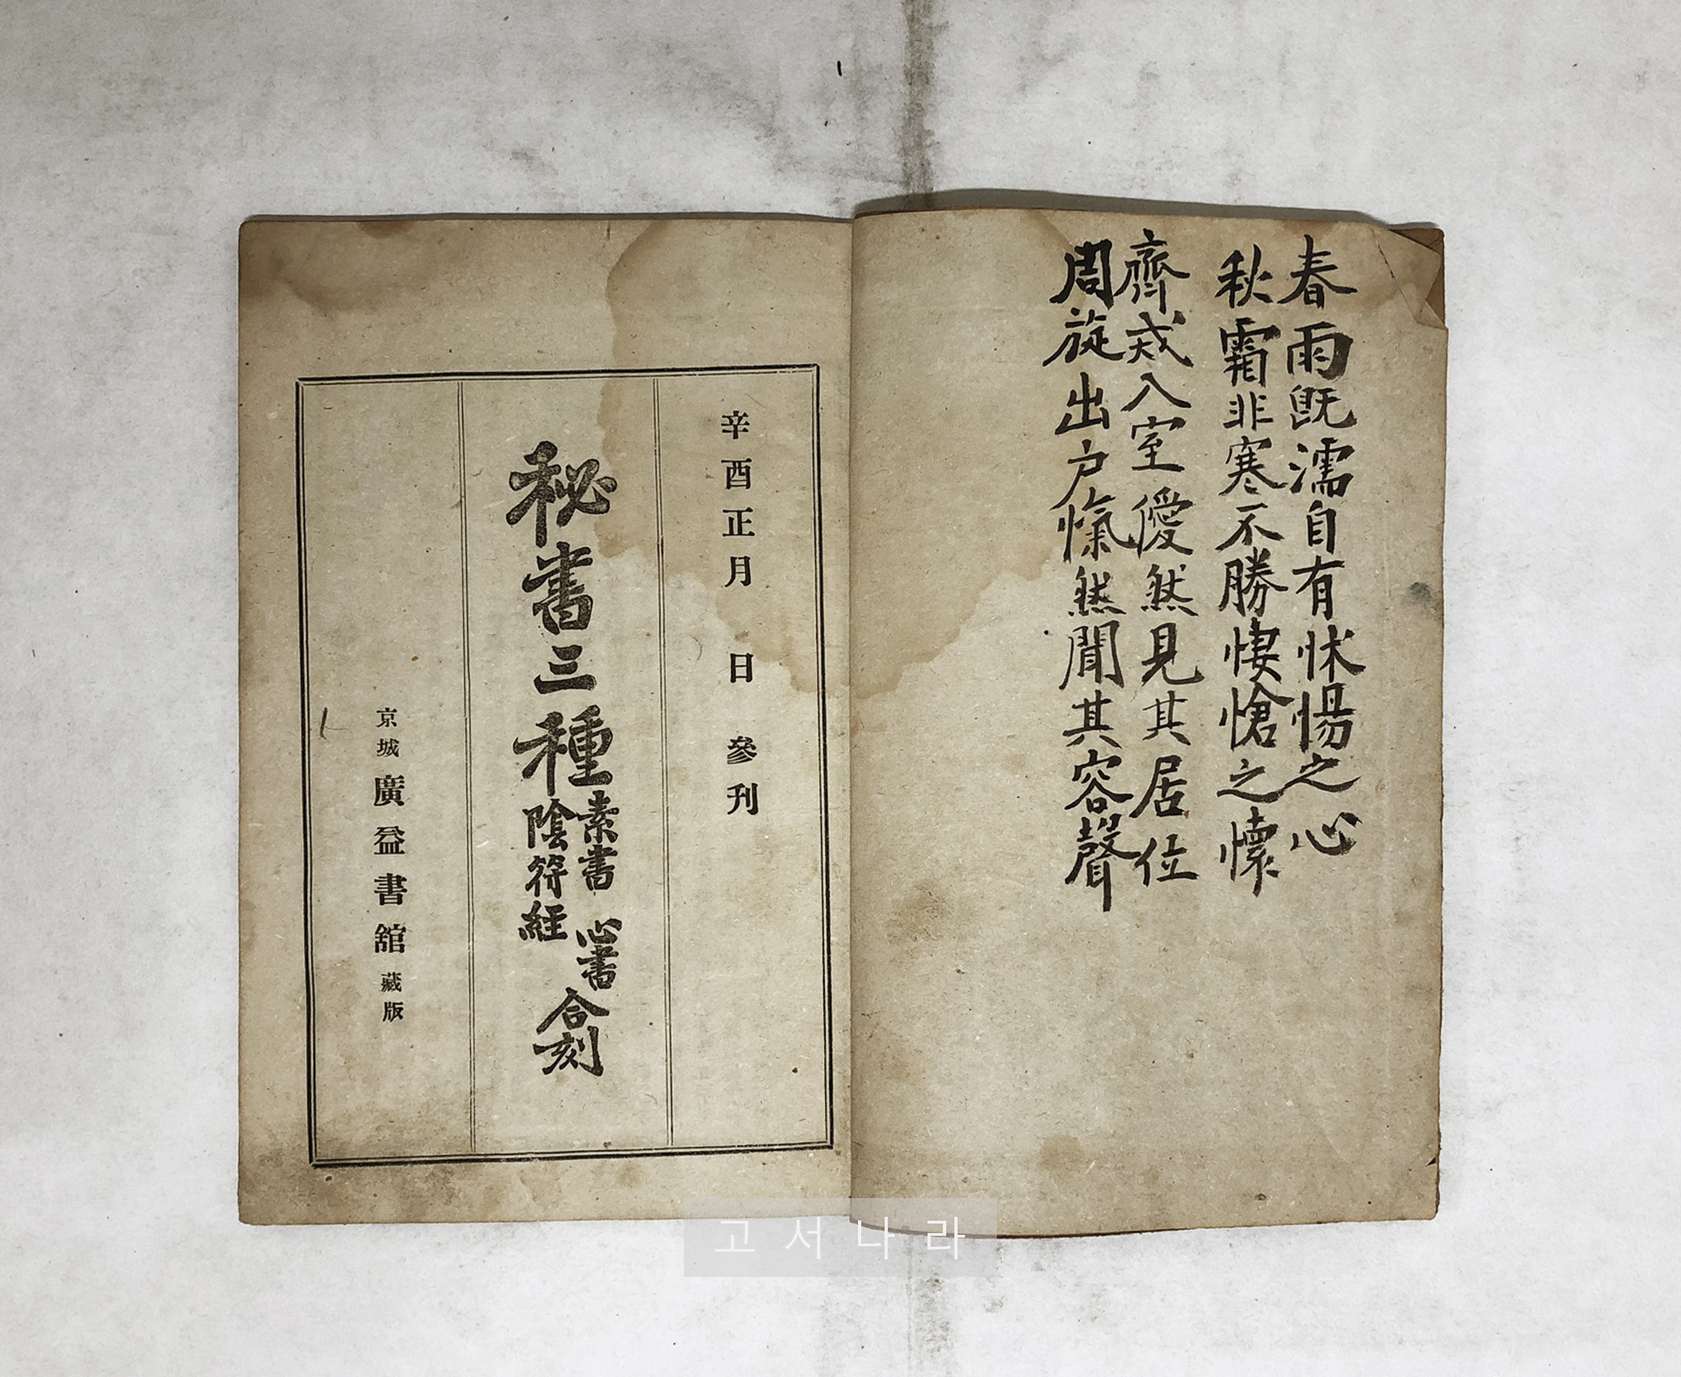 春雨旣濡自有怵惕之心
秋霜非寒不勝悽愴之懷
齊戒入室僾然見其居位
周旋出户愾然聞其容聲
辛酉正月 日參刊
秘書三種
素書 心書
陰符經
合刻
京城廣益書舘藏版
고서나라